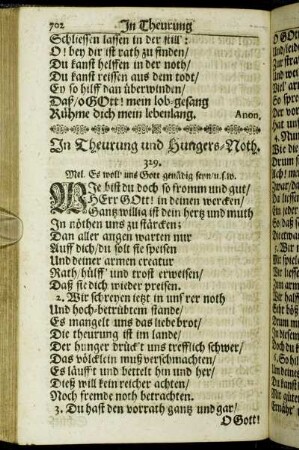 702 In Theurung
Schliessen lassen in der still:
O! bey dir ist rath zu finden/
Du kanst helffen in der noth/
Du kanst reissen aus dem todt/
Ey so hilff dan überwinden/
Daß/o GOtt! mein lob-gesang
Rühme dich mein lebenlang. Anon.
In Theurung und Hungers-Noth.
329.
Mel. Es woll uns Gott genädig seyn/u.s.w.
WJe bist du doch so fromm und gut/
HErr GOtt! in deinen wercken/
Gantz willig ist dein hertz und muth
In nöthen uns zu stärcken;
Dan aller augen warten nur
Auff dich/du solt sie speisen
Und deiner armen creatur
Rath/hülff und trost erweisen/
Daß sie dich wieder preisen.
2. Wir schreyen ietzt in unsrer noth
Und hoch-betrübtem stande/
Es mangelt uns das liebe brot/
Die theurung ist im lande/
Der hunger drückt uns trefflich schwer/
Das völcklein muß verschmachten/
Es läufft und bettelt hin und her/
Dieß will kein reicher achten/
Noch fremde noth betrachten.
3. Du hast den vorrath gantz und gar/
O Gott!